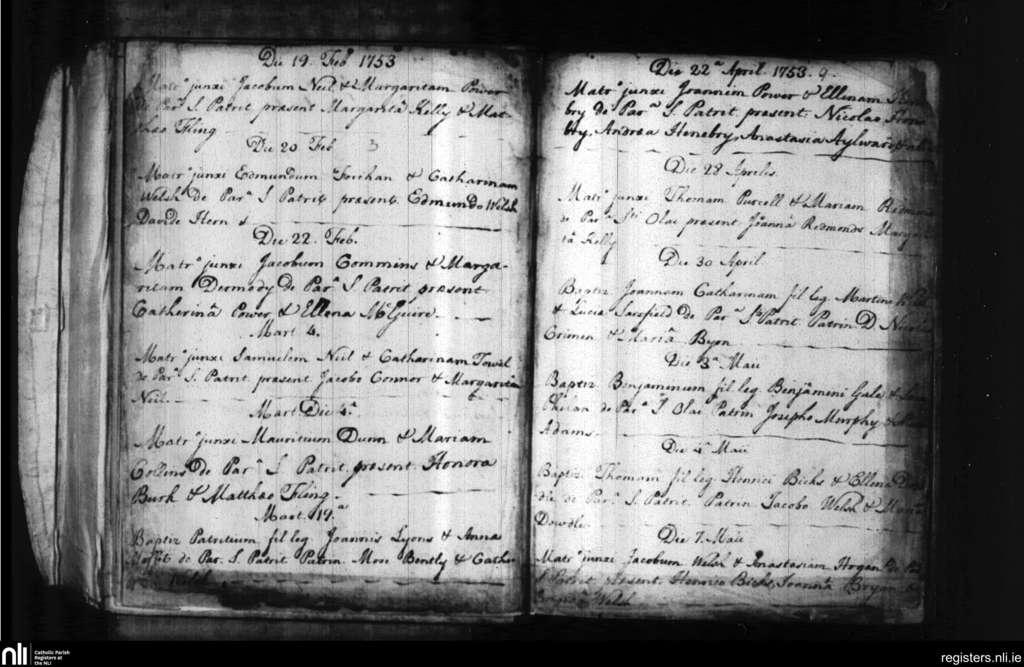 Die 19. Feb 1753
Matr.o junxi Jacobum Neil & Margaritam Power
de Par.a S. Patrit præsent Margarita Kelly & Mat-
thæo Fling
Die 20 Feb 3
Matr.o junxi Edmundum & Catharinam
Welsh de Par.a S Patrit præsent. Edmundo Welsh
Davide Hern &
Die 22. Feb.
Matr.o junxi Jacobum Commins & Marga-
ritam Dermody de Par.a S Patrit præsent
Catherina Power & Ellena McGuire.
Mart 4.
Matr.o junxi Samuelem Neil & Catharinam Towel
de Par.a S. Patrit præsent Jacobo Connor & Margarita
Neil.
Mart Die 4.a
Matr.o junxi Mauritium Dunn & Mariam
Collins de Par.a S Patrit. præsent. Honora
Burk & Matthæo Fling.
Mart. 19.a
Baptiz Patritium fil leg Joannis Lyons & Anna
Moffit de Par. S. Patrit Patrin. Mon Bently & Cathe-
Welsh
Die 22.a April. 1753. 9.
Matr.o junxi Joannem Power & Ellenam
bry de Par.a S. Patrit. præsent. Nicolao Hene-
bry, Andrea Henebry, Anastasia Aylward &
Die 28 Aprilis.
Matr.o junxi Thomam Purcell & Mariam Redmond
de Par.a S.ti Olai præsent Joanna Redmonds Marga-
ta Kelly
Die 30 April
Baptiz Joannam Catharinam fil leg Martini
& Lucia Sarsfield de Par.a S.ti Patrit. Patrin. D Nicolao
Crimen & Maria Byrn
Die 3.a Maii
Baptiz Benjaminum fil leg Benjamini Gale &
Phelan de Par.a S Olai Patrin Josepho Murphy &
Adams.
Die 4.a Maii
Baptiz Thomam fil leg Henrici Bicks & Ellena Dow-
dle de Par.a S. Patrit. Patrin Jacobo Welsh & Maria
Dowdle
Die 7. Maii
Matr.o junxi Jacobum Welsh & Anastasiam Hogan de Par.
S Patrit. præsent. Henrico Bicks, Joanna Bryan
Welsh
nli
Catholic Parish
Registers at
the NLI
registers.nli.ie